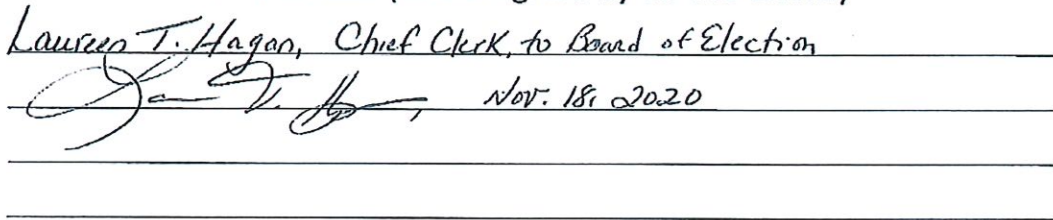 Laureen T. Hagan, Chief Clerk, to Board of Election
Nov. 18, 2020